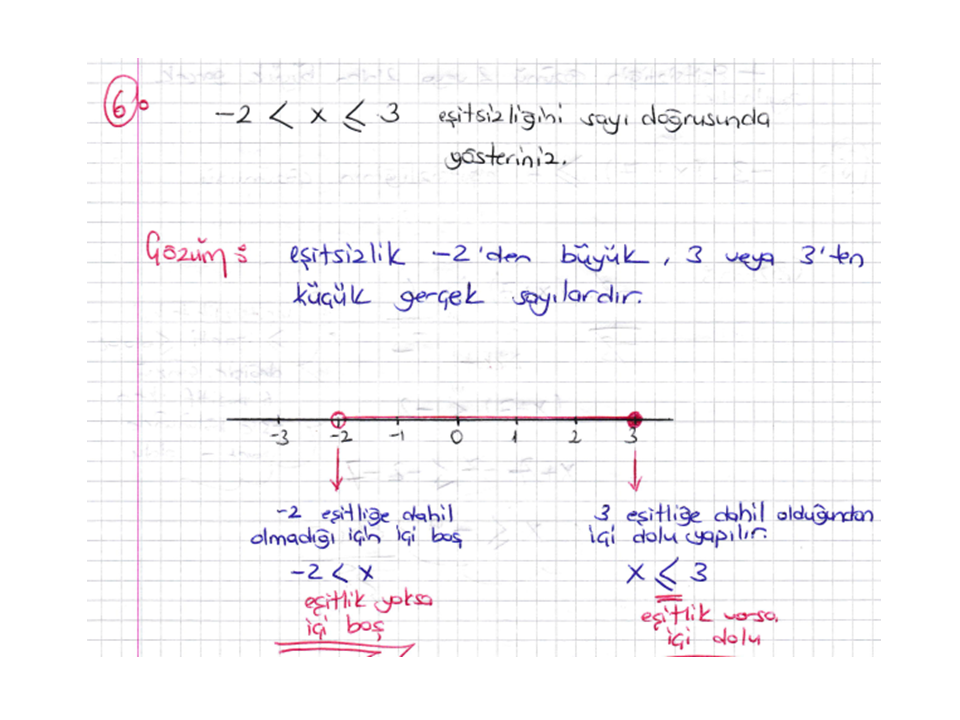 6: -2 < x ≤ 3 eşitsizliğini sayı doğrusunda
gösteriniz.
Çözüm: eşitsizlik -2'den büyük, 3 veya 3'ten
küçük gerçek sayılardır.
-3 -2 -1 0 1 2 3
-2 eşitliğe dahil
olmadığı için içi boş
-2 < x
eşitlik yoksa
içi boş
3 eşitliğe dahil olduğundan
içi dolu yapılır.
x ≤ 3
eşitlik varsa
içi dolu